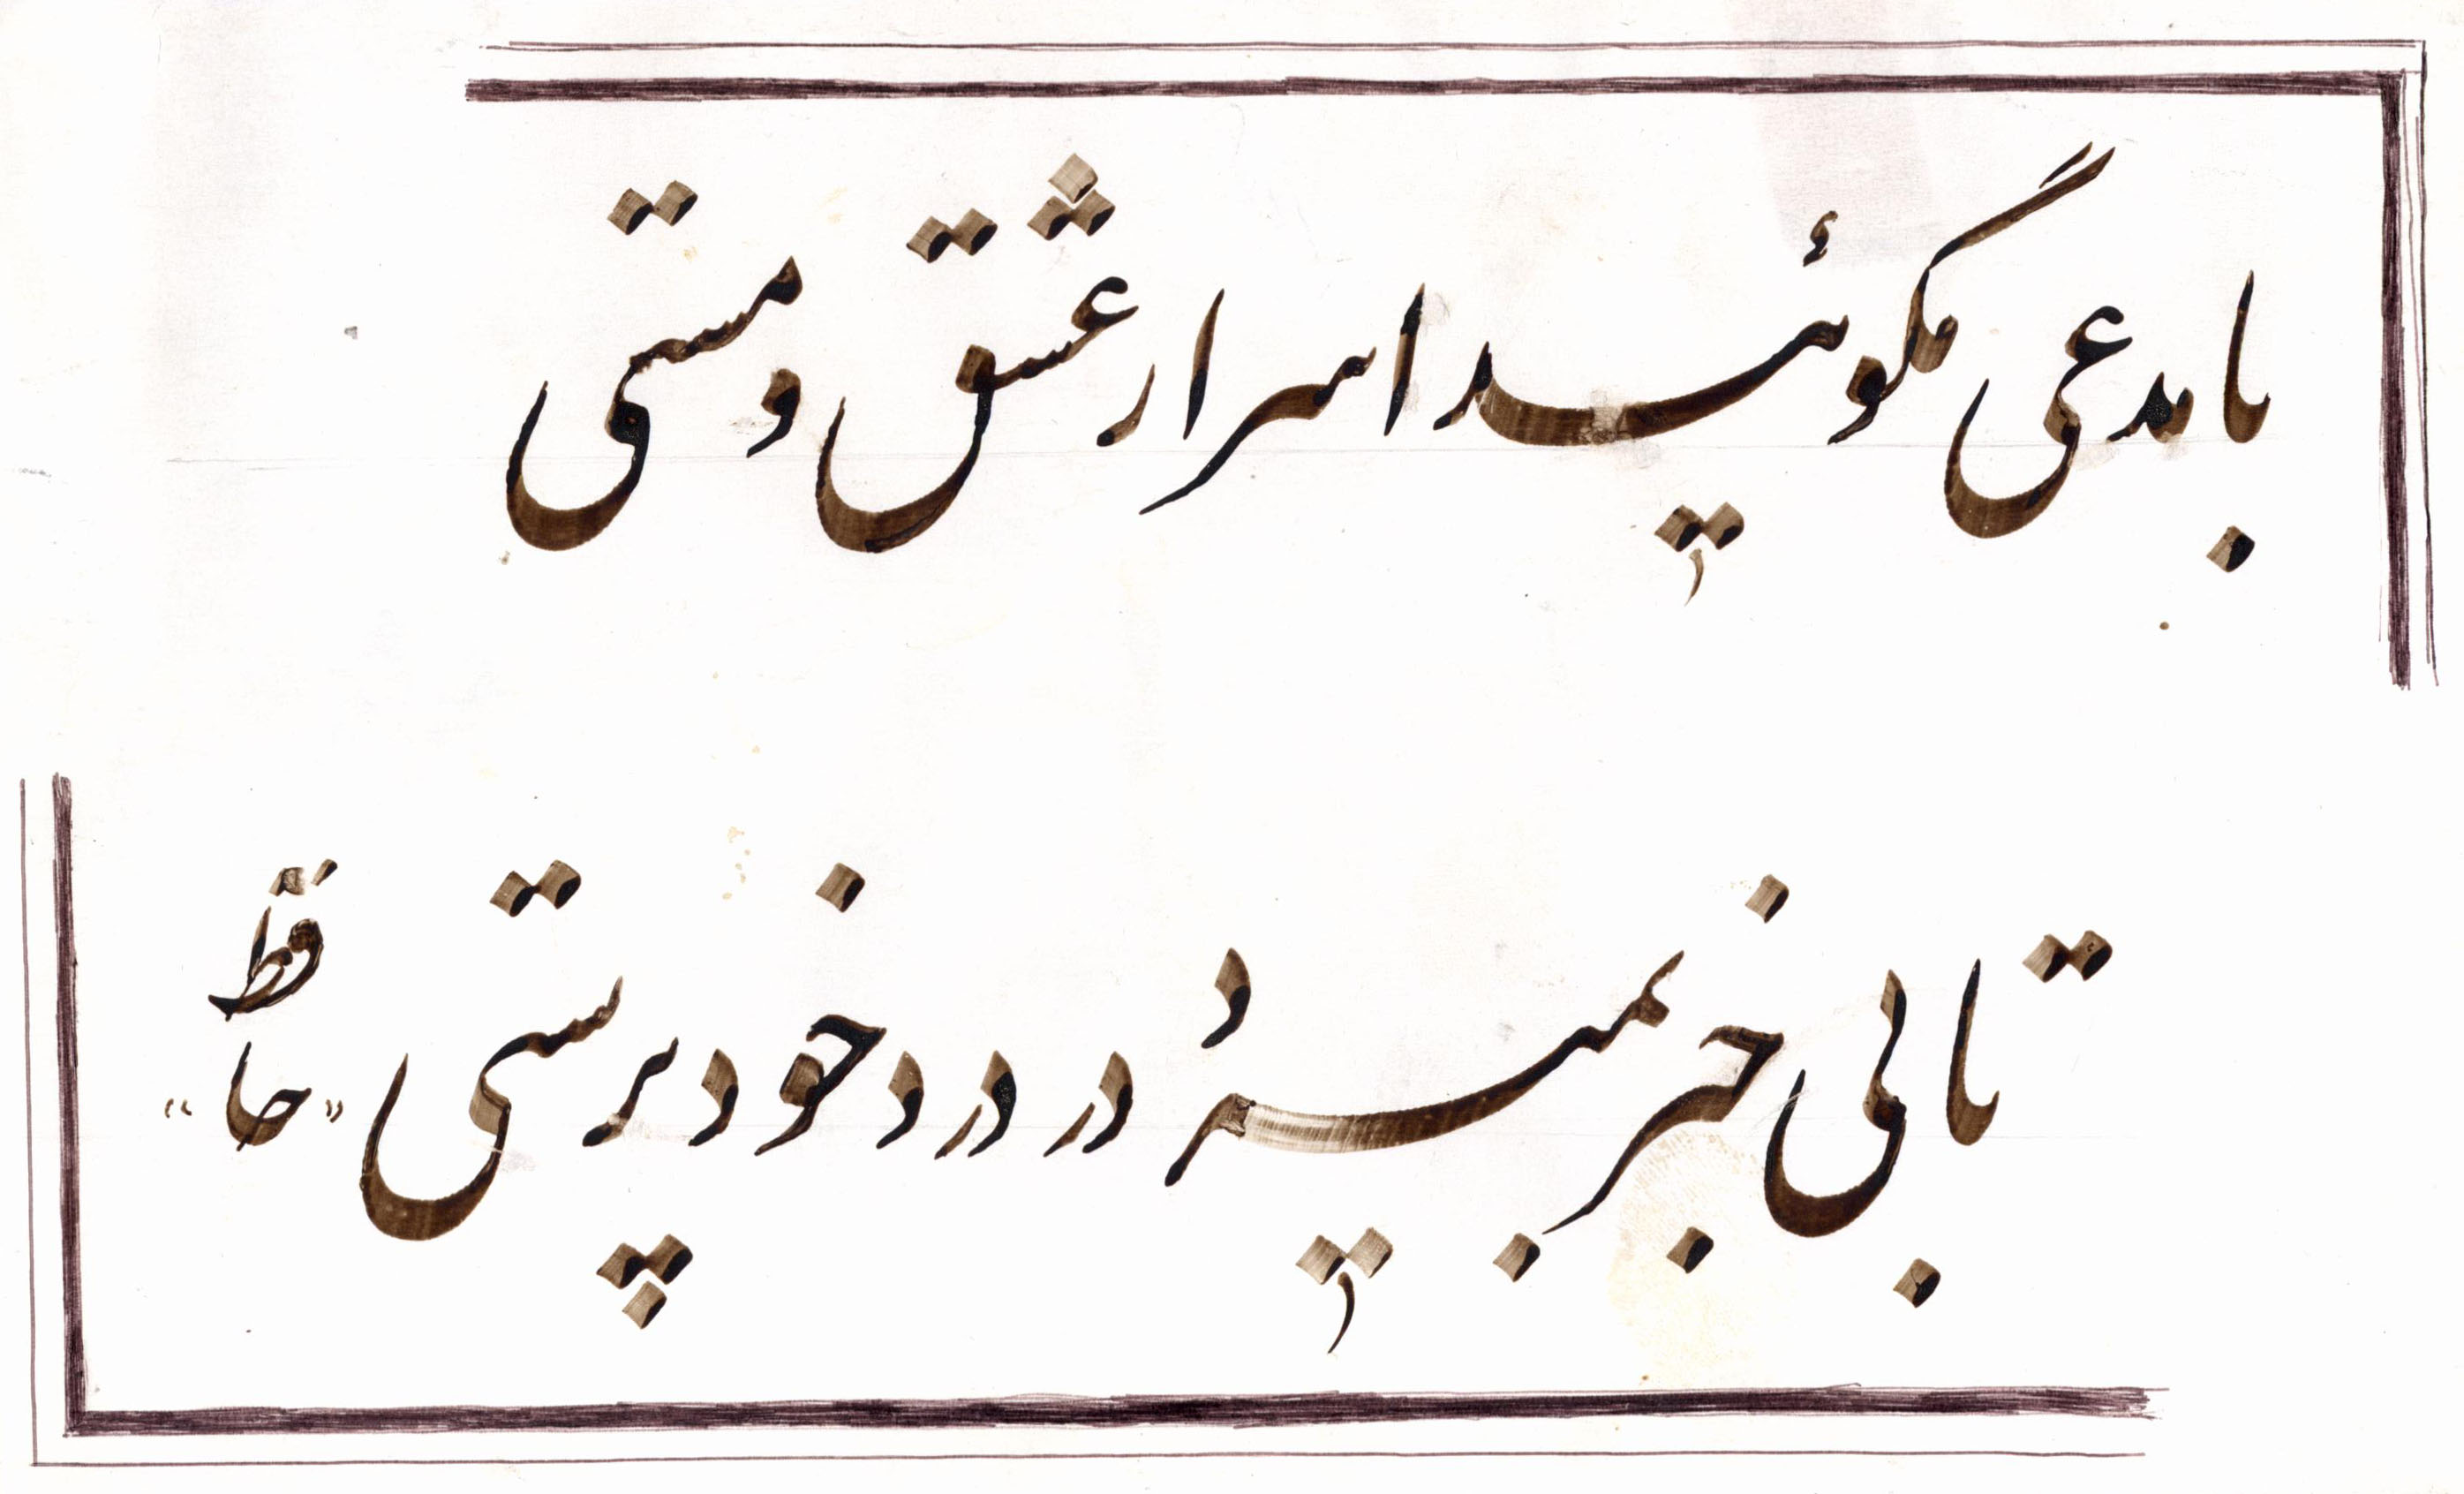 با مدعی مگوئید اسرار عشق و مستی
تا بی خبر بمیرد در درد خود پرستی «حافظ»